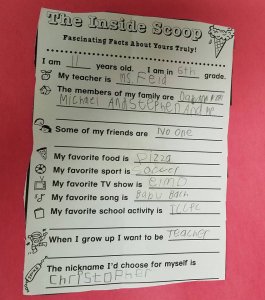 The Inside Scoop
Fascinating Facts About Yours Truly!
I am 11 years old. I am in 6th grade.
My teacher is Ms Reid
The members of my family are Dad mom
Michael And Stephen And me
Some of my friends are No one
My favorite food is pizza
My favorite sport is Soccer
My favorite TV show is elmo
My favorite song is Baby
My favorite school activity is
When I grow up I want to be Teacher
The nickname I'd choose for myself is
Christopher